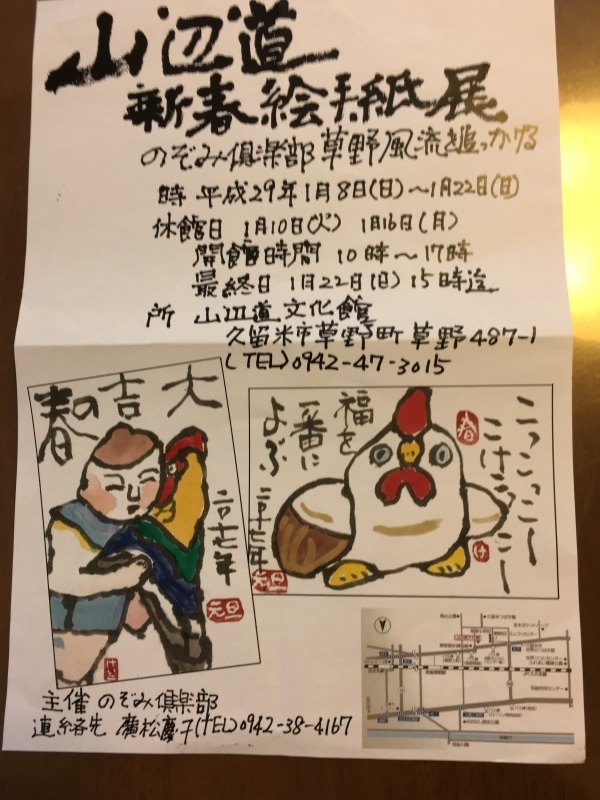 山辺道
新春絵手紙展
のぞみ倶楽部草野風流を追っかける
時 平成29年1月8日(日)〜1月22日(日)
休館日 1月10日(火) 1月16日(月)
開館時間 10時〜17時
最終日 1月22日(日) 15時迄
所 山辺道文化館
久留米市草野町草野487-1
(TEL)0942-47-3015
大吉の春
二〇十七年
元旦
けい
こっこっこー
こけこっこー
春
福を
一番に
よぶ
二〇十七年
元旦
け
主催 のぞみ倶楽部
連絡先 廣松慶子(TEL)0942-38-4167